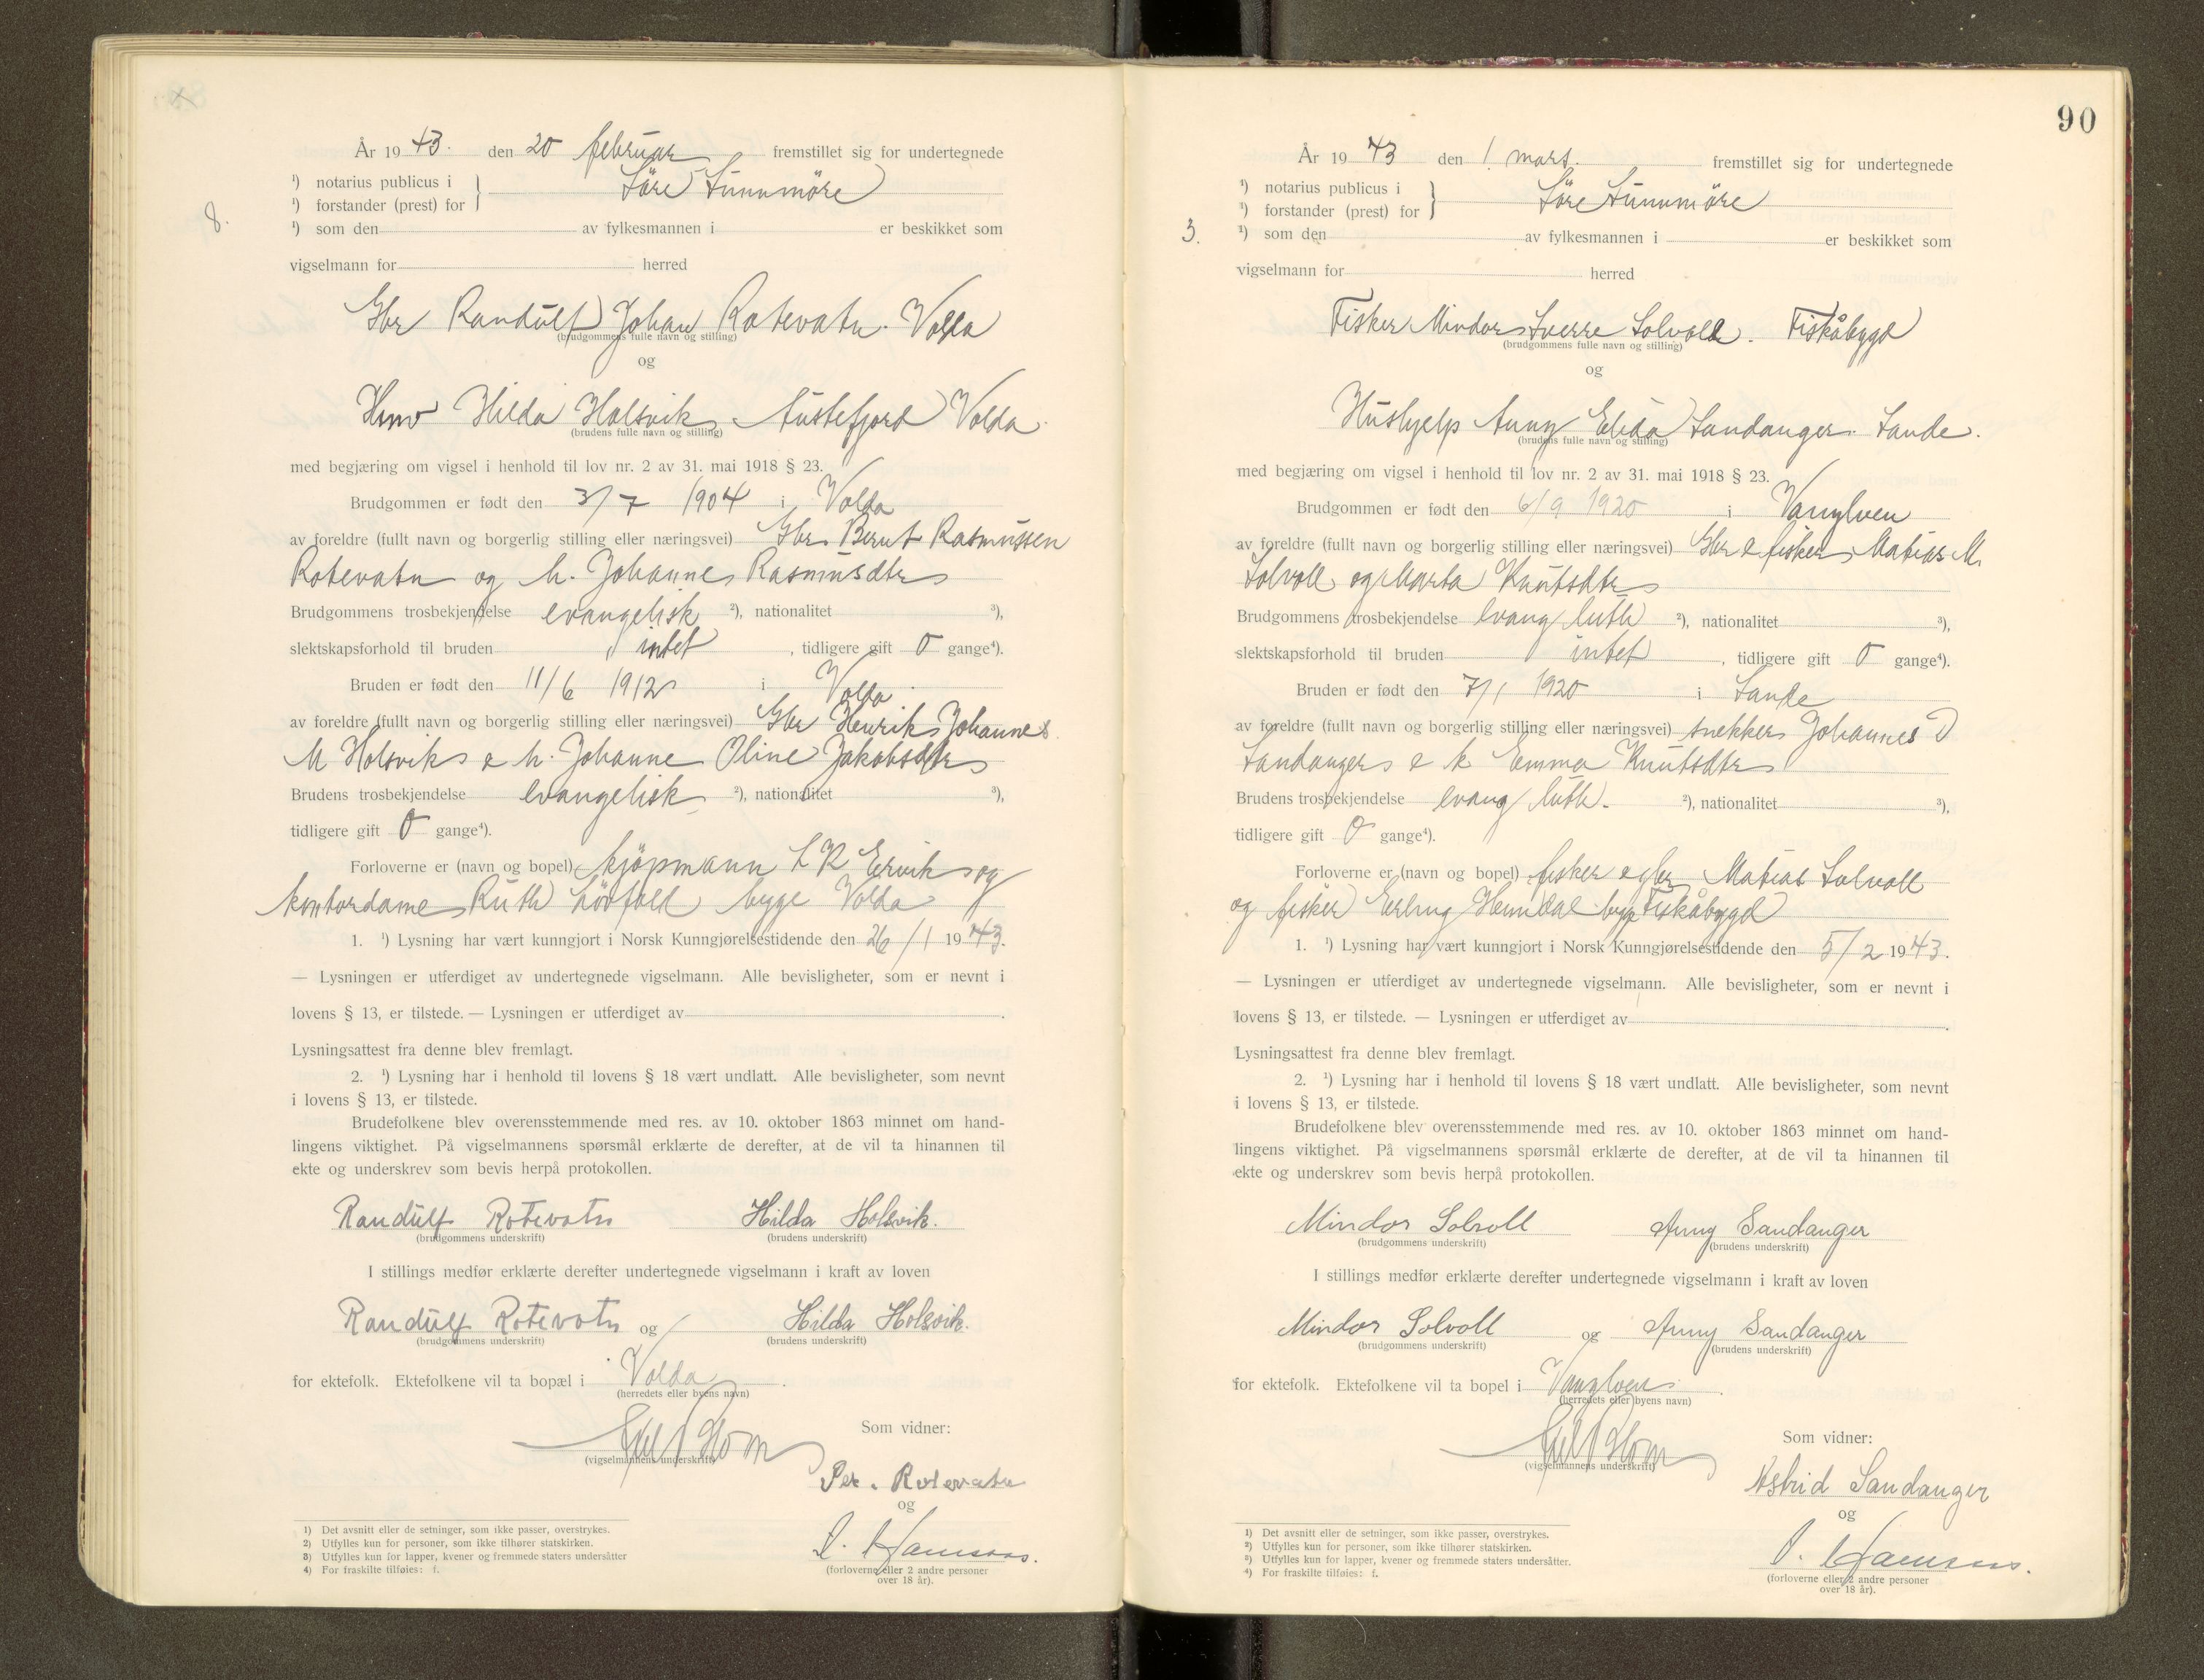 År 19 43. den 20 februar fremstillet sig for undertegnede
¹) notarius publicus i
¹) forstander (prest) for } Söre Sunnmöre
8.
¹) som den av fylkesmannen i er beskikket som
vigselmann for herred
Gbr Randulf Johan Rotevatn. Volda
(brudgommens fulle navn og stilling)
og
Hilda Holsvik Austefjord Volda.
(brudens fulle navn og stilling)
med begjæring om vigsel i henhold til lov nr. 2 av 31. mai 1918 § 23.
Brudgommen er født den 3/7 1904 i Volda
av foreldre (fullt navn og borgerlig stilling eller næringsvei) Gbr Bernt Rasmussen
Rotevatn og h. Johanne Rasmusdtr
Brudgommens trosbekjendelse evangelisk ²), nationalitet ³),
slektskapsforhold til bruden intet , tidligere gift 0 gange⁴).
Bruden er født den 11/6 1912 i Volda
av foreldre (fullt navn og borgerlig stilling eller næringsvei) Gbr Henrik Johannes
M Holsvik & h. Johanne Oline Jakobsdtr
Brudens trosbekjendelse evangelisk ²), nationalitet ³),
tidligere gift 0 gange⁴).
Forloverne er (navn og bopel) kjöpmann L R Ervik og
kontordame Ruth Lövfall begge Volda
1. ¹) Lysning har vært kunngjort i Norsk Kunngjørelsestidende den 26/1 1943.
— Lysningen er utferdiget av undertegnede vigselmann. Alle bevisligheter, som er nevnt i
lovens § 13, er tilstede. — Lysningen er utferdiget av .
Lysningsattest fra denne blev fremlagt.
2. ¹) Lysning har i henhold til lovens § 18 vært undlatt. Alle bevisligheter, som nevnt
i lovens § 13, er tilstede.
Brudefolkene blev overensstemmende med res. av 10. oktober 1863 minnet om hand-
lingens viktighet. På vigselmannens spørsmål erklærte de derefter, at de vil ta hinannen til
ekte og underskrev som bevis herpå protokollen.
Randulf Rotevatn Hilda Holsvik.
(brudgommens underskrift) (brudens underskrift)
I stillings medfør erklærte derefter undertegnede vigselmann i kraft av loven
Randulf Rotevatn og Hilda Holsvik.
(brudgommens underskrift) (brudens underskrift)
for ektefolk. Ektefolkene vil ta bopæl i Volda .
(herredets eller byens navn)
Som vidner:
(vigselmannens underskrift)
Per. Rotevatn
og
(forloverne eller 2 andre personer
over 18 år).
1) Det avsnitt eller de setninger, som ikke passer, overstrykes.
2) Utfylles kun for personer, som ikke tilhører statskirken.
3) Utfylles kun for lapper, kvener og fremmede staters undersåtter
4) For fraskilte tilføies: f.
90
År 19 43 den 1. mars. fremstillet sig for undertegnede
¹) notarius publicus i
¹) forstander (prest) for } Söre Sunnmöre
3.
¹) som den av fylkesmannen i er beskikket som
vigselmann for herred
Fisker Mindor Sverre Solvoll. Fiskåbygd
(brudgommens fulle navn og stilling)
og
Hushjelp Anny Elida Sandanger. Sande.
(brudens fulle navn og stilling)
med begjæring om vigsel i henhold til lov nr. 2 av 31. mai 1918 § 23.
Brudgommen er født den 6/9 1920 i Vanylven
av foreldre (fullt navn og borgerlig stilling eller næringsvei) Gbr & fisker Matias M.
Solvoll og Marta Knutsdtr
Brudgommens trosbekjendelse evang luth ²), nationalitet ³),
slektskapsforhold til bruden intet , tidligere gift 0 gange⁴).
Bruden er født den 7/1 1920 i Sande
av foreldre (fullt navn og borgerlig stilling eller næringsvei) snekker Johannes D
Sandanger & h Emma Knutsdtr
Brudens trosbekjendelse evang luth. ²), nationalitet ³),
tidligere gift 0 gange⁴).
Forloverne er (navn og bopel) fisker & gbr Matias Solvoll
og fisker Erling Hemdal begge Fiskåbygd
1. ¹) Lysning har vært kunngjort i Norsk Kunngjørelsestidende den 5/2 1943.
— Lysningen er utferdiget av undertegnede vigselmann. Alle bevisligheter, som er nevnt i
lovens § 13, er tilstede. — Lysningen er utferdiget av .
Lysningsattest fra denne blev fremlagt.
2. ¹) Lysning har i henhold til lovens § 18 vært undlatt. Alle bevisligheter, som nevnt
i lovens § 13, er tilstede.
Brudefolkene blev overensstemmende med res. av 10. oktober 1863 minnet om hand-
lingens viktighet. På vigselmannens spørsmål erklærte de derefter, at de vil ta hinannen til
ekte og underskrev som bevis herpå protokollen.
Mindor Solvoll Anny Sandanger
(brudgommens underskrift) (brudens underskrift)
I stillings medfør erklærte derefter undertegnede vigselmann i kraft av loven
Mindor Solvoll og Anny Sandanger
(brudgommens underskrift) (brudens underskrift)
for ektefolk. Ektefolkene vil ta bopel i Vanylven .
(herredets eller byens navn)
Som vidner:
(vigselmannens underskrift)
Astrid Sandanger
og
(forloverne eller 2 andre personer
over 18 år).
1) Det avsnitt eller de setninger, som ikke passer, overstrykes.
2) Utfylles kun for personer, som ikke tilhører statskirken.
3) Utfylles kun for lapper, kvener og fremmede staters undersåtter.
4) For fraskilte tilføies: f.